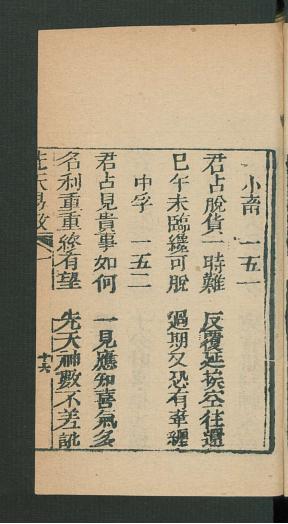 小畜 一五一
君占脫貨一時難 反覆延挨空往還
巳午未臨纔可脫 過期又恐有牽纏
中孚 一五二
君占見貴事如何 一見應知喜氣多
名利重重終有望 先天神數不差訛
先天易數 一 十六